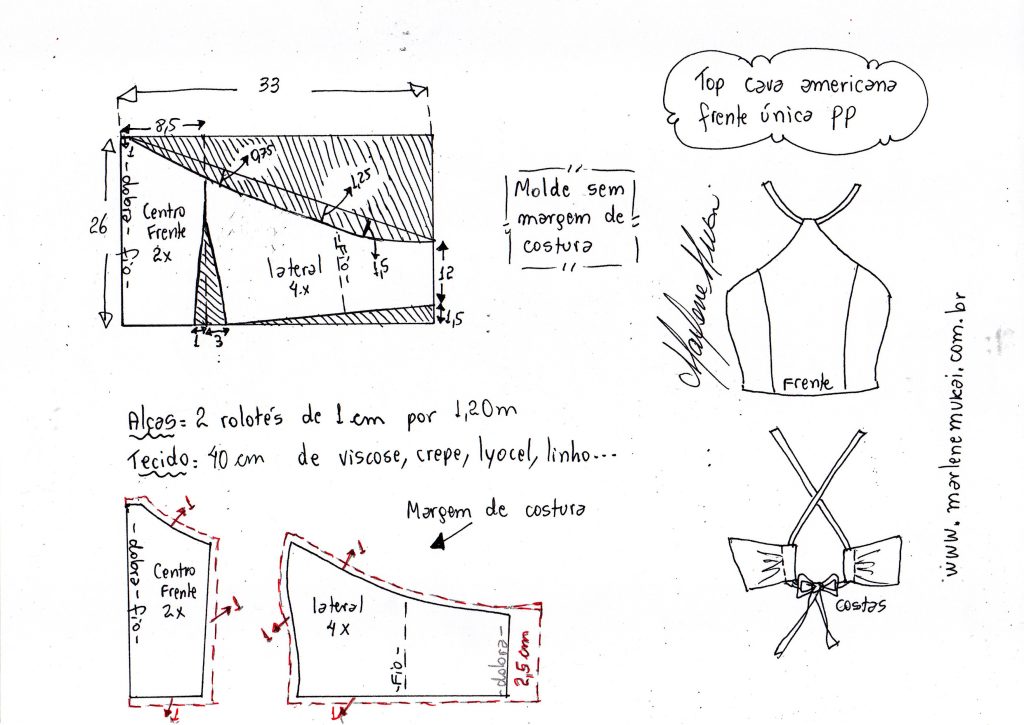 33
8,5
1
- dobra - fio -
26
Centro
Frente
2x
0,75
1,25
1,5
lateral
4x
- Fio -
12
1,5
1
3
Top cava americana
frente única PP
Molde sem
margem de
costura
Marlene Mukai
www.marlenemukai.com.br
Frente
Alças: 2 rolotés de 1 cm por 1,20m
Tecido: 40 cm de viscose, crepe, lyocel, linho...
costas
Margem de costura
1
- dobra - fio -
Centro
Frente
2x
1
1
1
lateral
4x
1
- Fio -
- dobra -
2,5 cm
1